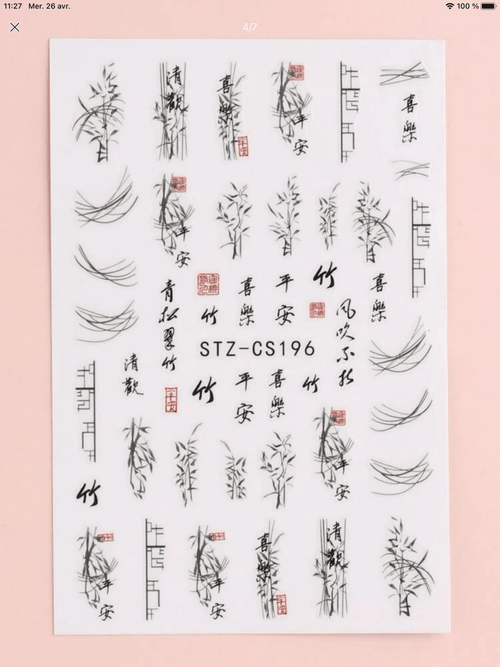 11:27 Mer. 26 avr.
100 %
4/7
清觀
喜樂
平安
喜樂
平安
青松翠竹
竹
喜樂
平安
竹
喜樂
風吹不折
STZ-CS196
清觀
竹
平安
喜樂
竹
平安
竹
平安
平安
喜樂
清觀